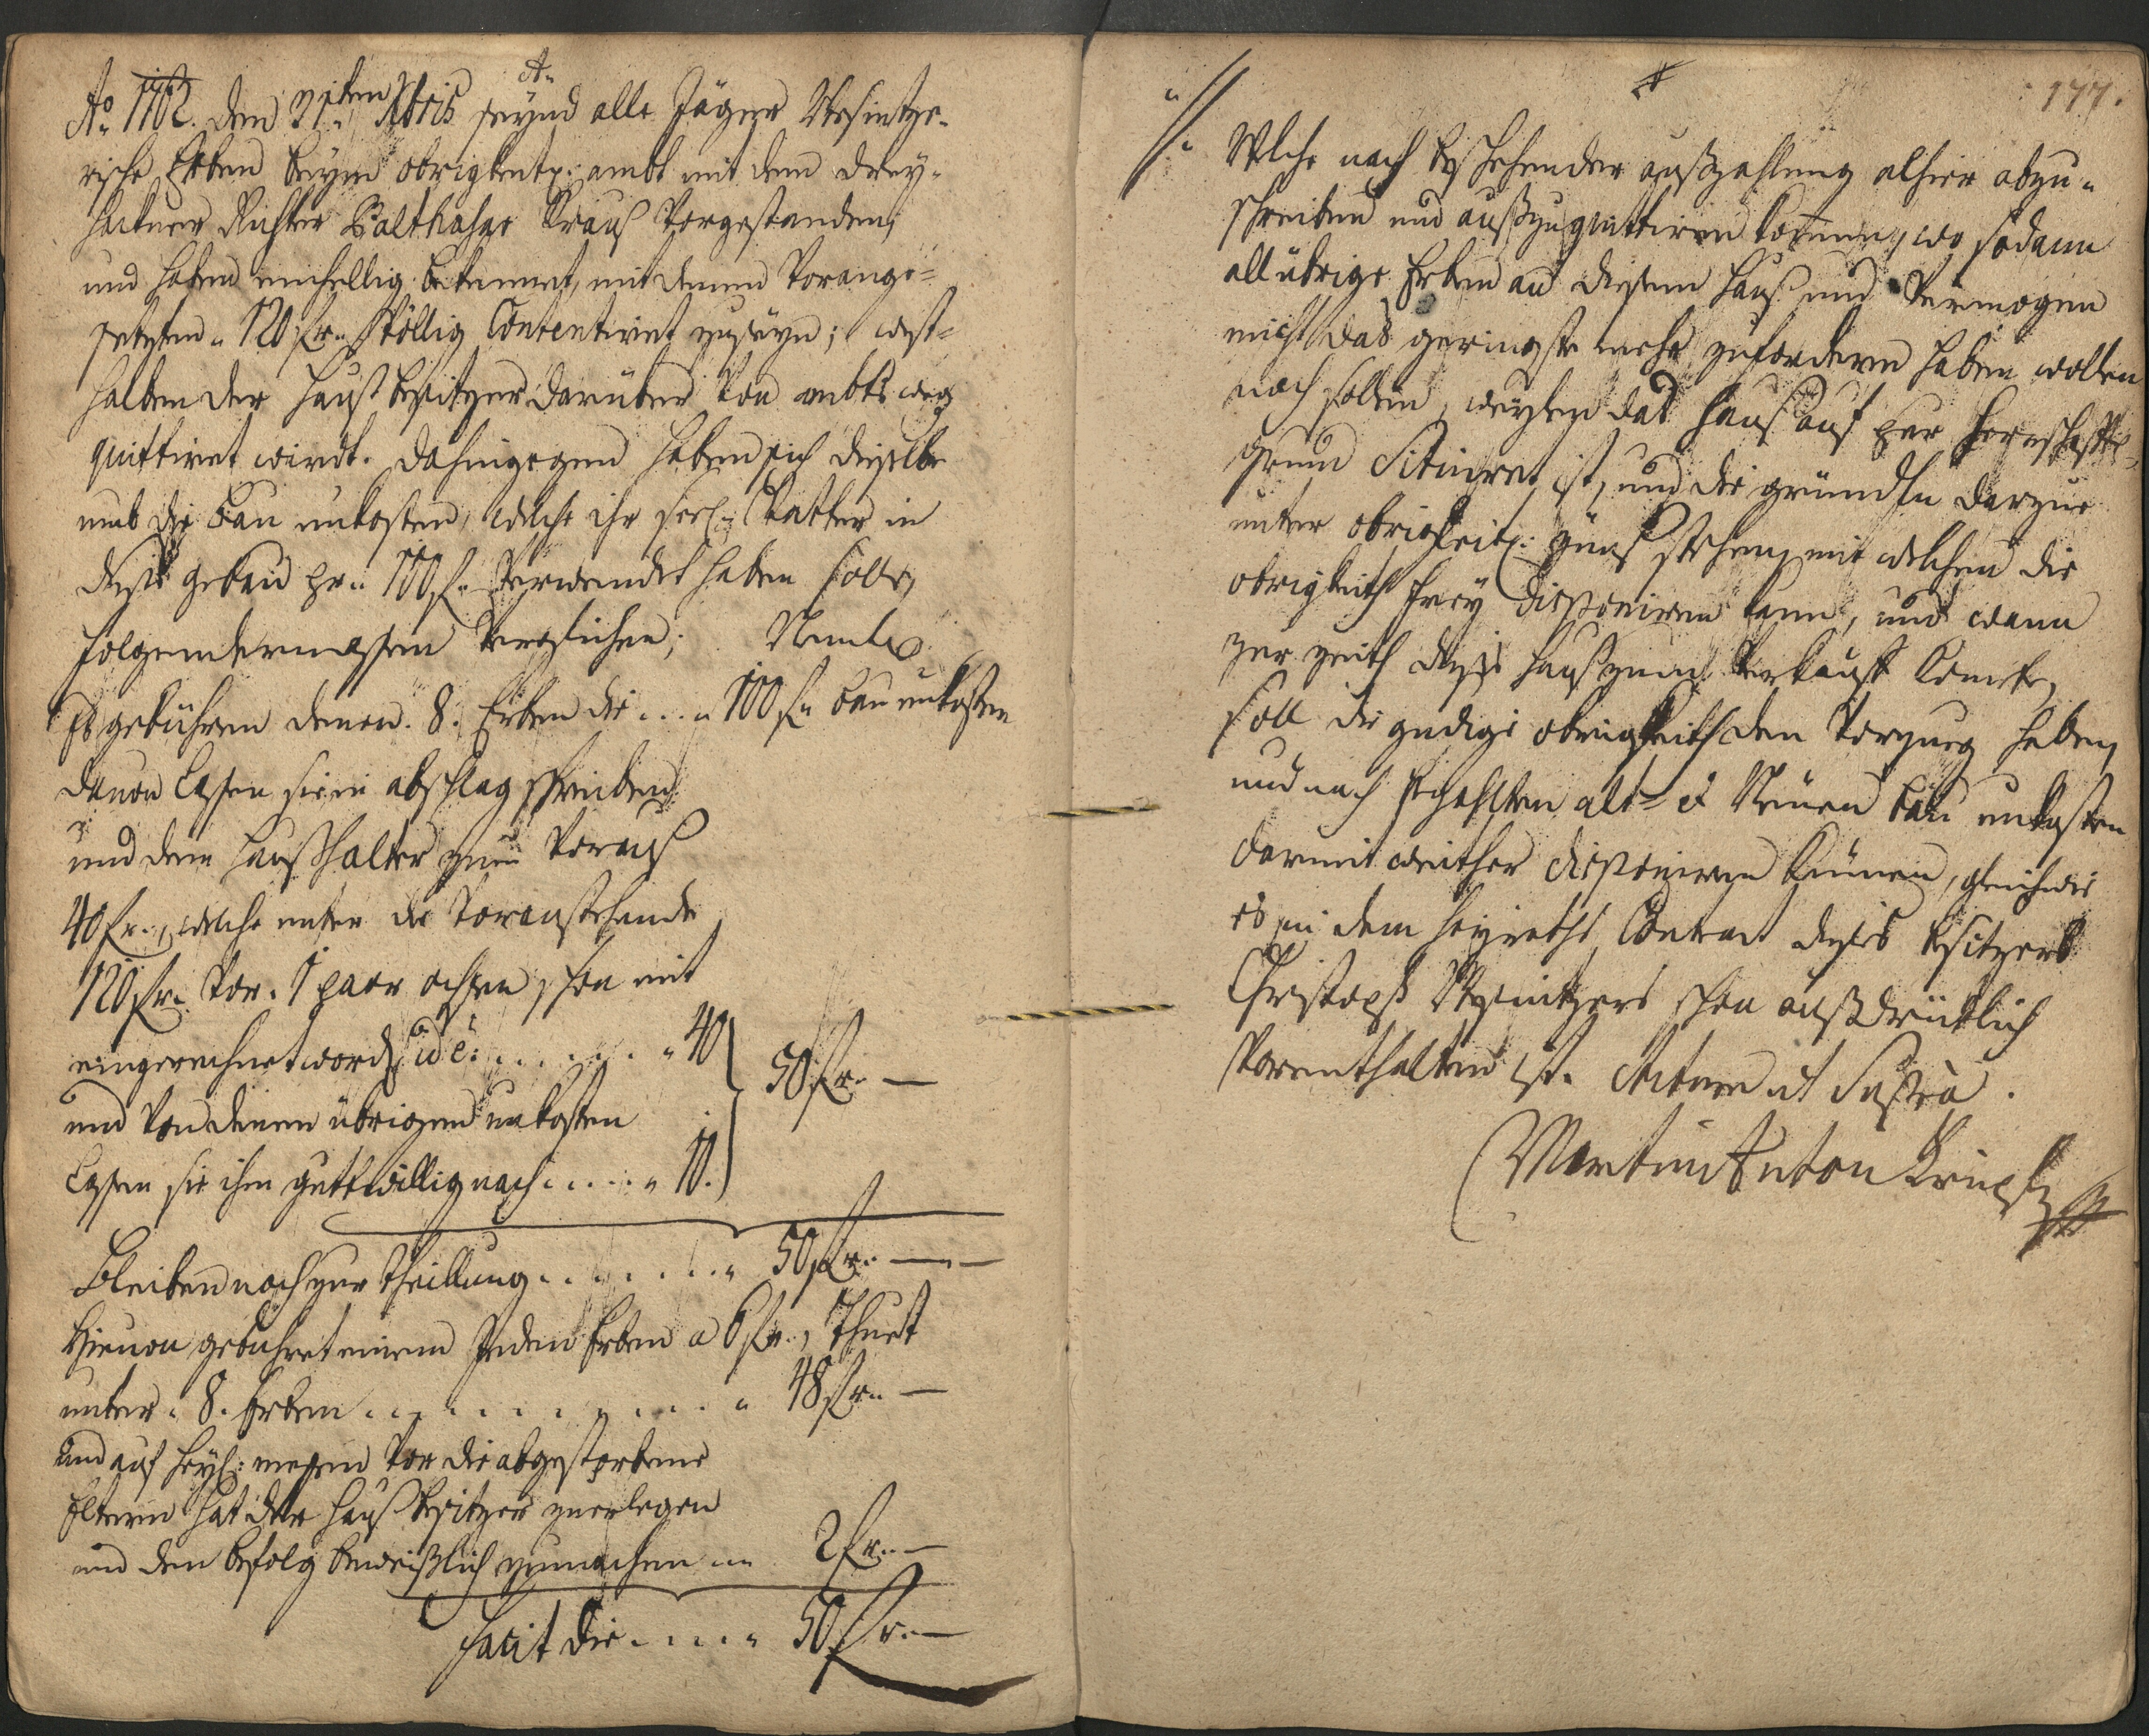 A:
Aõ 1762. den 21ten Xbris seynd alle Jäger Wesintze-
rische Erben beym obrigkeitl: ambt mit dem drey-
hackner Richter Balthasar Krauß Vorgestanden,
und haben einhellig bekennet, mit denen Vorange-
setzten 120 fr. Völlig Contentiret zu seyn; west-
halben der Haußbesitzer darüber von ambts weg
quittiret wirdt. dahingegen haben sich dieselbe
umb die bau unkosten, welche ihr seel: Vatter in
dieses gebäu pr. 100 f. Verwendet haben solle,
folgendermassen Verglichen; Nembl:
Es gebühren denen 8. Erben die . . . 100 f. bau unkosten
davon lassen sie in abschlag schreiben
und dem Haußhalter zum Vorauß
40 fr., welche unter die Voranstehende
120 fr. vor 1 paar ochsen schon mit
eingerechnet word. id e: . . . . . 40
50 fr. —
und von denen übrigen unkosten
lassen sie ihm guttwillig nach . . . . . 10.
Bleiben noch zur theillung . . . . . . 50 fr. — —
Hievon gebühret einem Jeden Erben a 6 fr., thuet
unter 8. Erben . . . . . . . . . . 48 fr. —
und auf heyl: messen vor die abgestorbene
Eltern hat der Hauß besitzer zuerlegen
und den befolg beweißlich zumachen . . . 2 fr. —
facit die . . . . . 50 fr. —
177.
Welche nach beschehender außzahlung alhier abzu-
schreiben und außzuquittiren kommen, wo sodann
all übrige Erben an diesem Hauß und Vermögen
nicht das geringste mehr zufordern haben wollen
noch sollen, weylen das Hauß auf herrschaftl:
grund Situiret ist, und die gründln darzue
unter obrigkeitl: Zünß stehen, mit welchen die
obrigkeith frey disponiren kann, und wann
zur zeith dieses Hauß zum Verkauff komete,
soll die gnädige obrigkeith den Vorzueg haben,
und nach bezahlten alt- et Neuen bau unkosten
darmit weither disponiren können, gleichwie
es in dem Heyraths Contract dieses besitzers
Christoph Wesintzers schon außdrücklich
Vorenthalten ist. Actum ut Supra.
Martin Anton